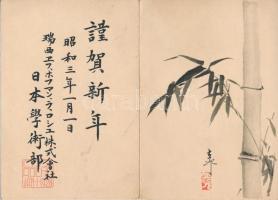 謹賀新年
昭和三年一月一日
瑞西エフ、ホフマン、ラ、ロシュ株式會社
日本學術部